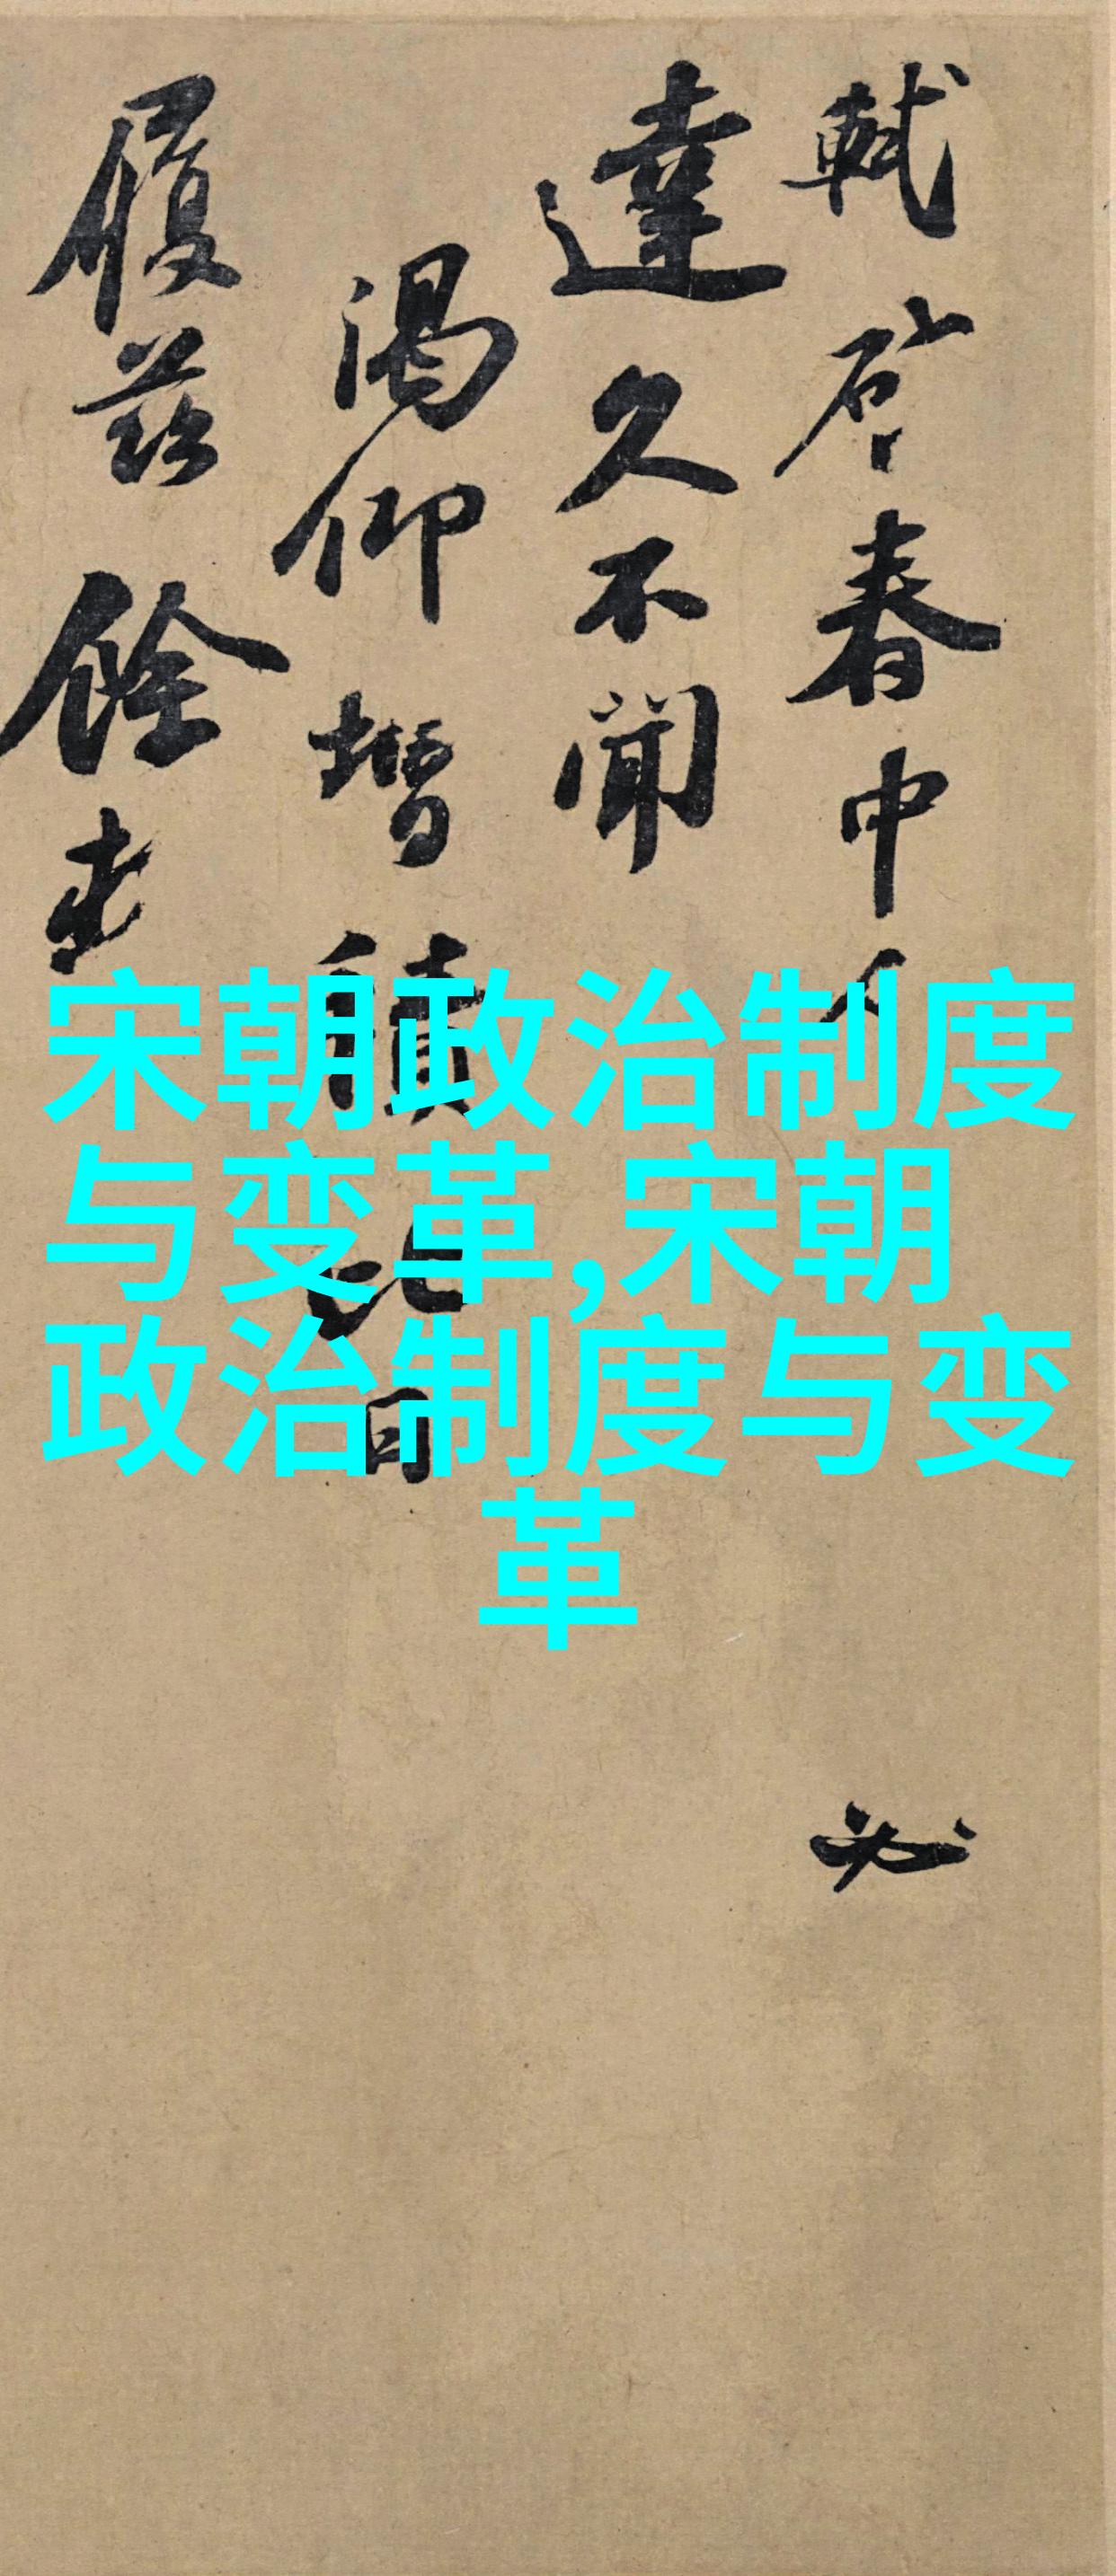 軾啓春中人必
達久不聞
渴仰增積比日
履茲餘
宋朝政治制度
与变革,宋朝
政治制度与变
革